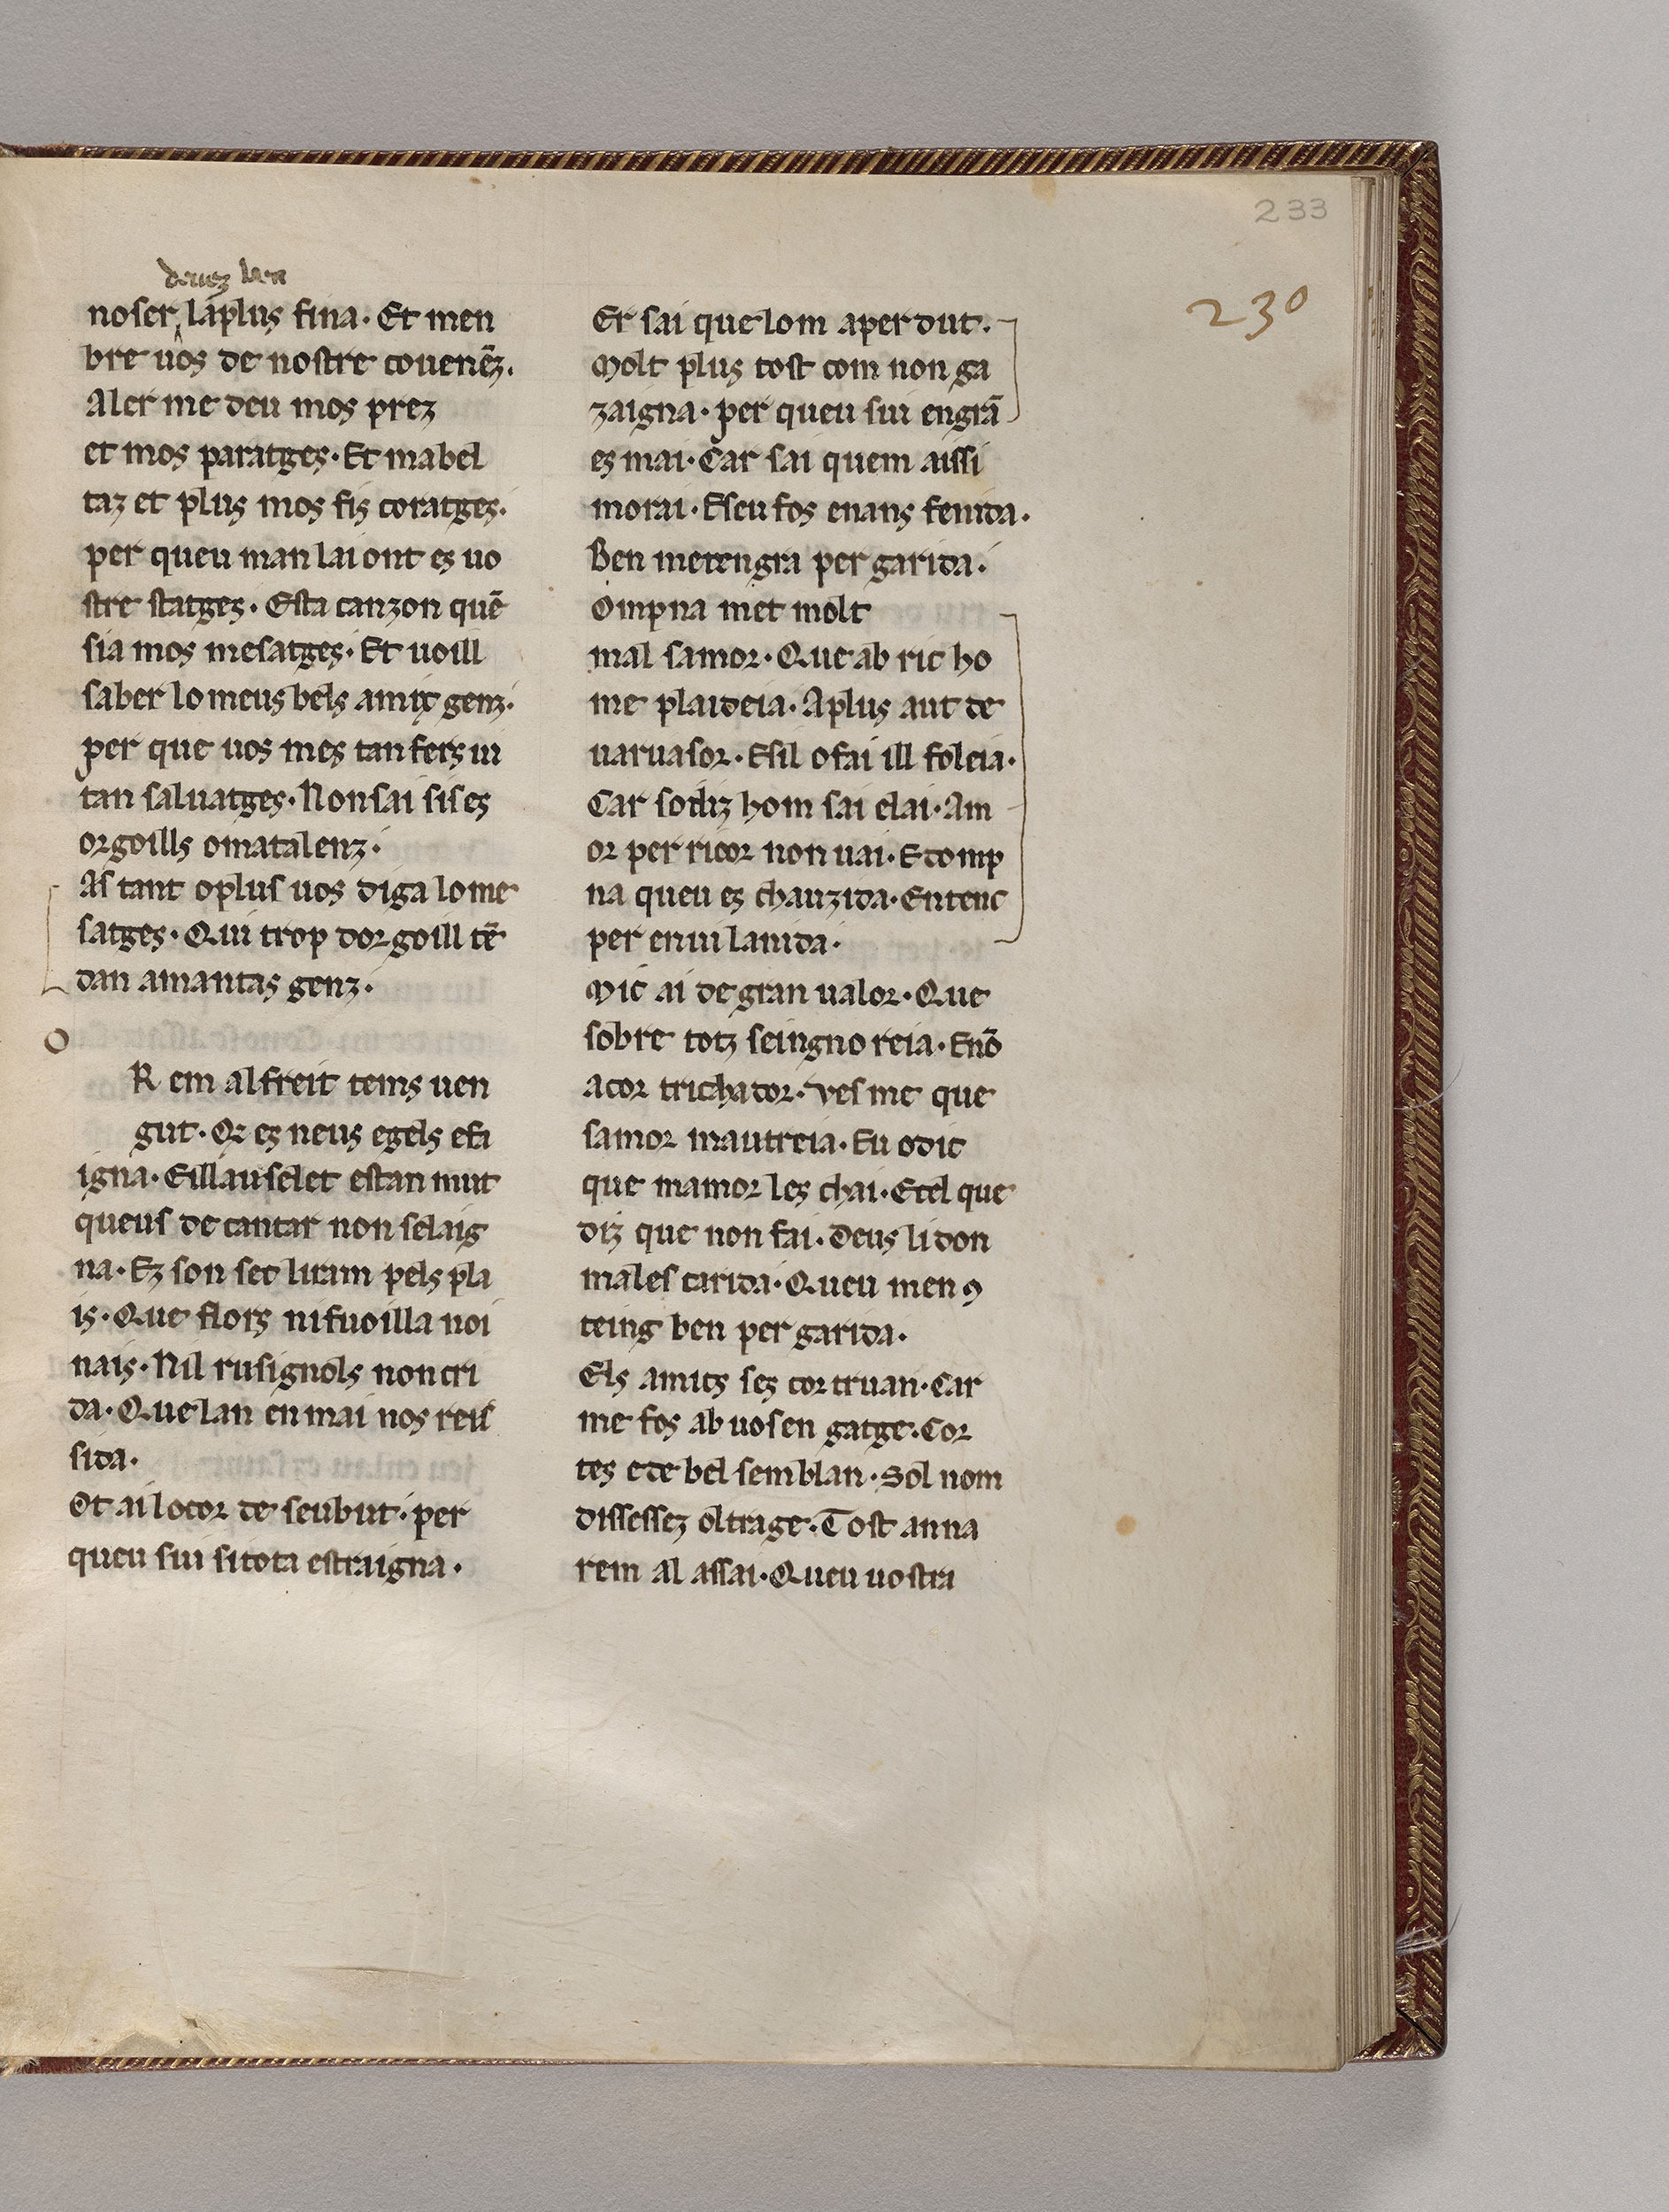 233
230
deuez ben
noser laplus fina· Et men
bre uos de nostre couenēz.
Aler me deu mos prez
et mos paratges· Et mabel
taz et plus mos fis coratges·
per queu man lai ont es uo
stre statges· Esta canzon quē
sia mos mesatges· Et uoill
saber lo meus bels amix genz·
per que uos mes tan fers ni
tan saluatges· Non sai sis es
orgoills omatalenz·
As tant oplus uos diga lo me
satges· Qui trop dorgoill tē
dan amantas genz·
o
R em alfreit tems uen
gut· Qr es neus egels efa
igna· Eillauselet estan mut
queus de cantar non selaig
na· Ez son sec li ram pels pla
is· Que flors ni fuoilla noi
nais· Nil rusignols non cri
da· Que lan en mai nos reis
sida·
Ot ai lo cor de seubut· per
queu sui si tota estraigna·
Er sai que lom aperdut·
Molt plus tost com non ga
zaigna· per queu sui engrā
es mai· Car sai quem aissi
morai· Eseu fos enans fenida·
Ben metengra per garida·
Ompna met molt
mal samor· Que ab ric ho
me plaideia· Aplus aut de
uaruasor· Esil o fai ill foleia·
Car so diz hom sai elai· Am
or per ricor non uai· E domp
na queu es chauzida· Entenc
per enuilanida·
Mic ai de gran ualor· Que
sobre totz seingnoreia· Enō
acor trichador· Ves me que
samor mautreia· Eu o dic
que mamor les chai· Ecel que
diz que non fai· Deus li don
males tarida· Queu men ꝯ
teing ben per garida·
Els amics ses cor truan· Car
me fos ab uos en gatge· Cor
tes e de bel semblan· Sol nom
dissessez oltrage· Tost anna
rem al assai· Queu uostra